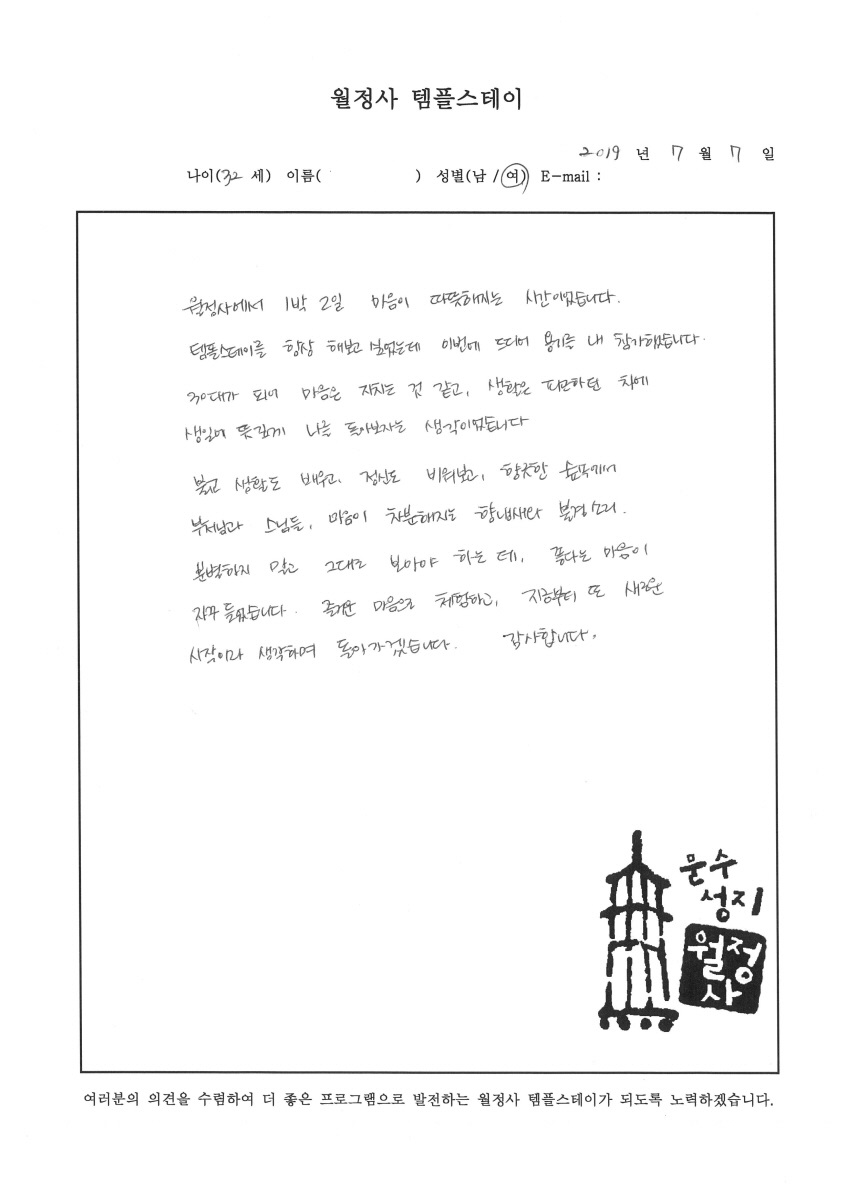 월정사 템플스테이
2019 년 7 월 7 일
나이(32 세) 이름( ) 성별(남 / 여) E-mail :
월정사에서 1박 2일 마음이 따뜻해지는 시간이었습니다.
템플스테이를 항상 해보고 싶었는데 이번에 드디어 용기를 내 참가했습니다.
30대가 되어 마음은 지치는 것 같고, 생활은 피로하던 차에
생일에 뜻깊게 나를 돌아보자는 생각이었습니다
불교 생활도 배우고, 정신도 비워보고, 향긋한 숲속에서
부처님과 스님들, 마음이 차분해지는 향냄새와 불경소리.
분별하지 말고 그대로 보아야 하는 데, 좋다는 마음이
자꾸 들었습니다. 즐거운 마음으로 체험하고, 지금부터 또 새로운
시작이라 생각하며 돌아가겠습니다. 감사합니다.
문수
성지
월정
사
여러분의 의견을 수렴하여 더 좋은 프로그램으로 발전하는 월정사 템플스테이가 되도록 노력하겠습니다.